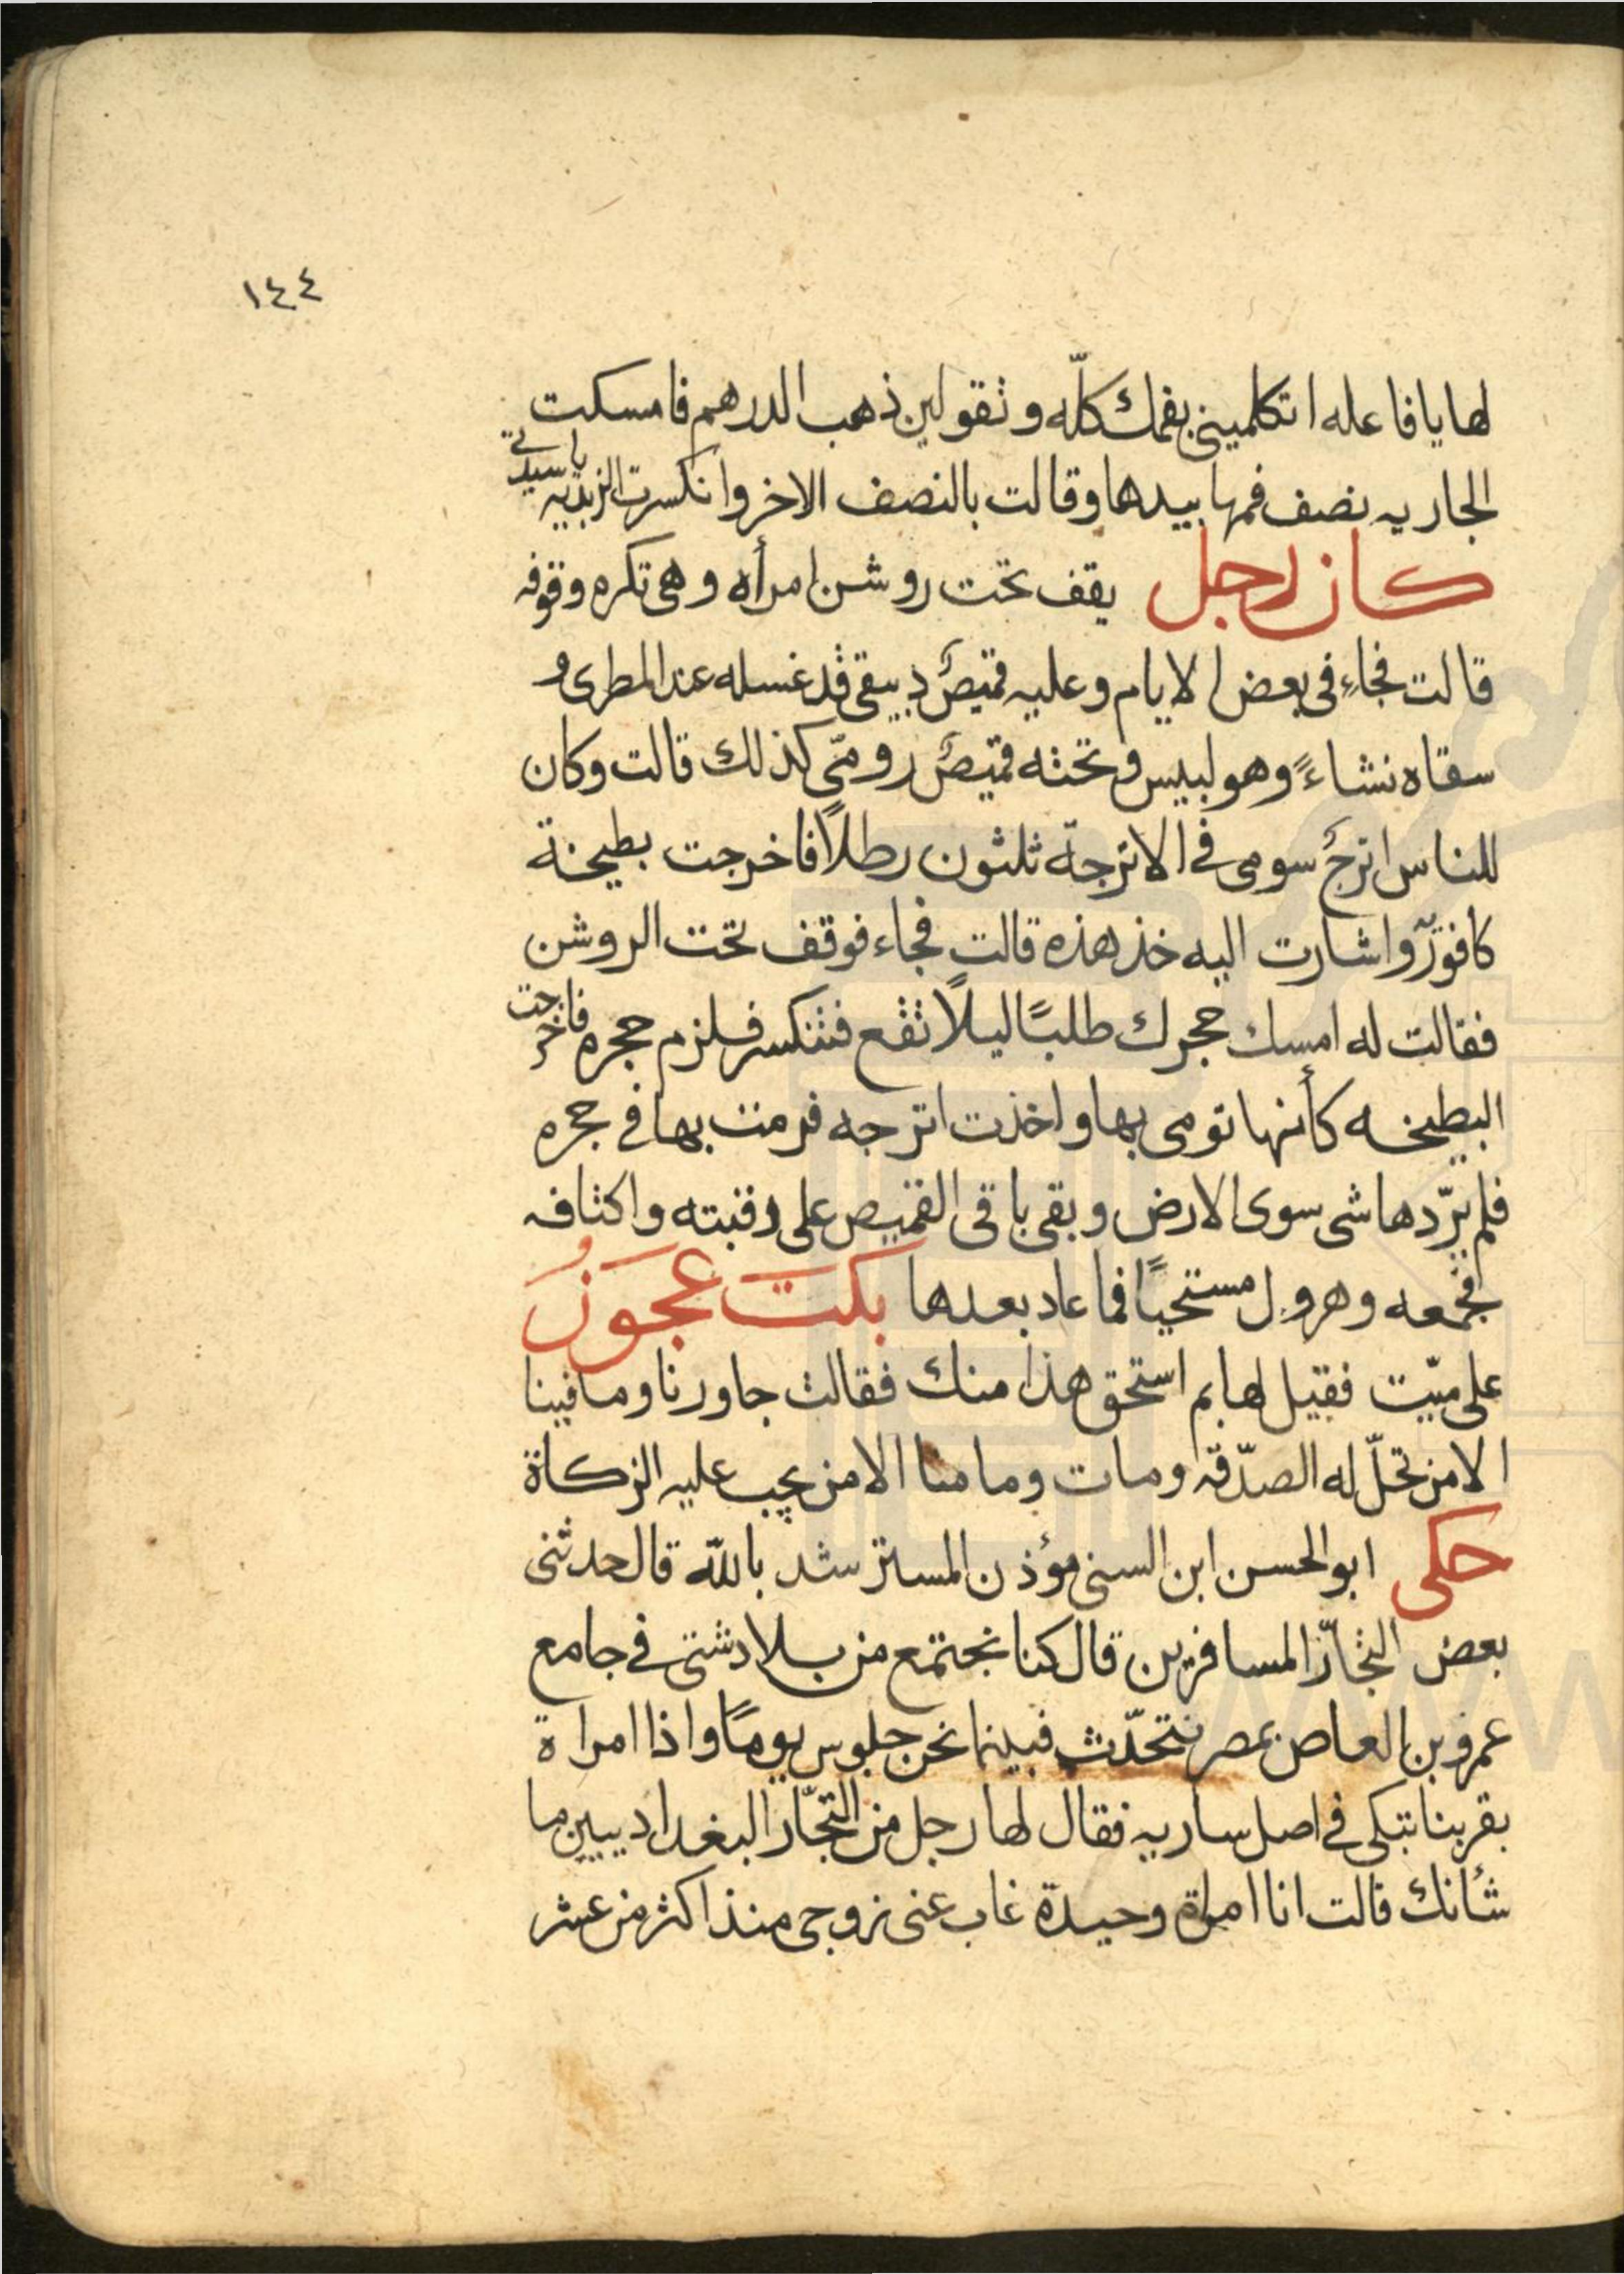 ١٤٤
لها يا فاعله اتكلميني بفمك كلّه وتقولين ذهب الدرهم فامسكت
الجاريه نصف فمها بيدها وقالت بالنصف الاخر وانكسرت الزبديه يا سيدتي
كان رجل يقف تحت روشن امرأه وهى تكره وقوفه
قالت فجاء فى بعض الايام وعليه قميصٌ دبيقى قد غسله عند المطرى و
سقاه نشاءً وهو لبيس وتحته قميصٌ رومىّ كذلك قالت وكان
للناس اترجٌ سومى فى الاترجّة ثلثون رطلاً فاخرجت بطيخة
كافورٍ واشارت اليه خذ هذه قالت فجاء فوقف تحت الروشن
فقالت له امسك حجرك طلبًا ليلاً تقع فتنكسر فلزم حجره فاخرجت
البطيخه كأنها تومى بها واخذت اترجه فرمت بها فى حجره
فلم يردّها شى سوى الارض وبقى باقى القميص على رقبته واكتافه
فجمعه وهرول مستحيًا فما عاد بعدها بكت عجوزُ
على ميّت فقيل لها بم استحق هذا منك فقالت جاورنا وما فينا
الا من تحلّ له الصدّقه ومات وما منا الا من يجب عليه الزكاة
حكى ابو الحسن ابن السنى مؤذن المسترشد بالله قال حدثنى
بعض التجّار المسافرين قال كنا نجتمع من بلاد شتى فى جامع
عمرو بن العاص بمصر نتحدّث فبينما نحن جلوس يومًا واذا امراة
بقربنا تبكى فى اصل ساريه فقال لها رجل من التجّار البغداديين ما
شأنك قالت انا امراة وحيدة غاب عنى زوجى منذ اكثر من عشر